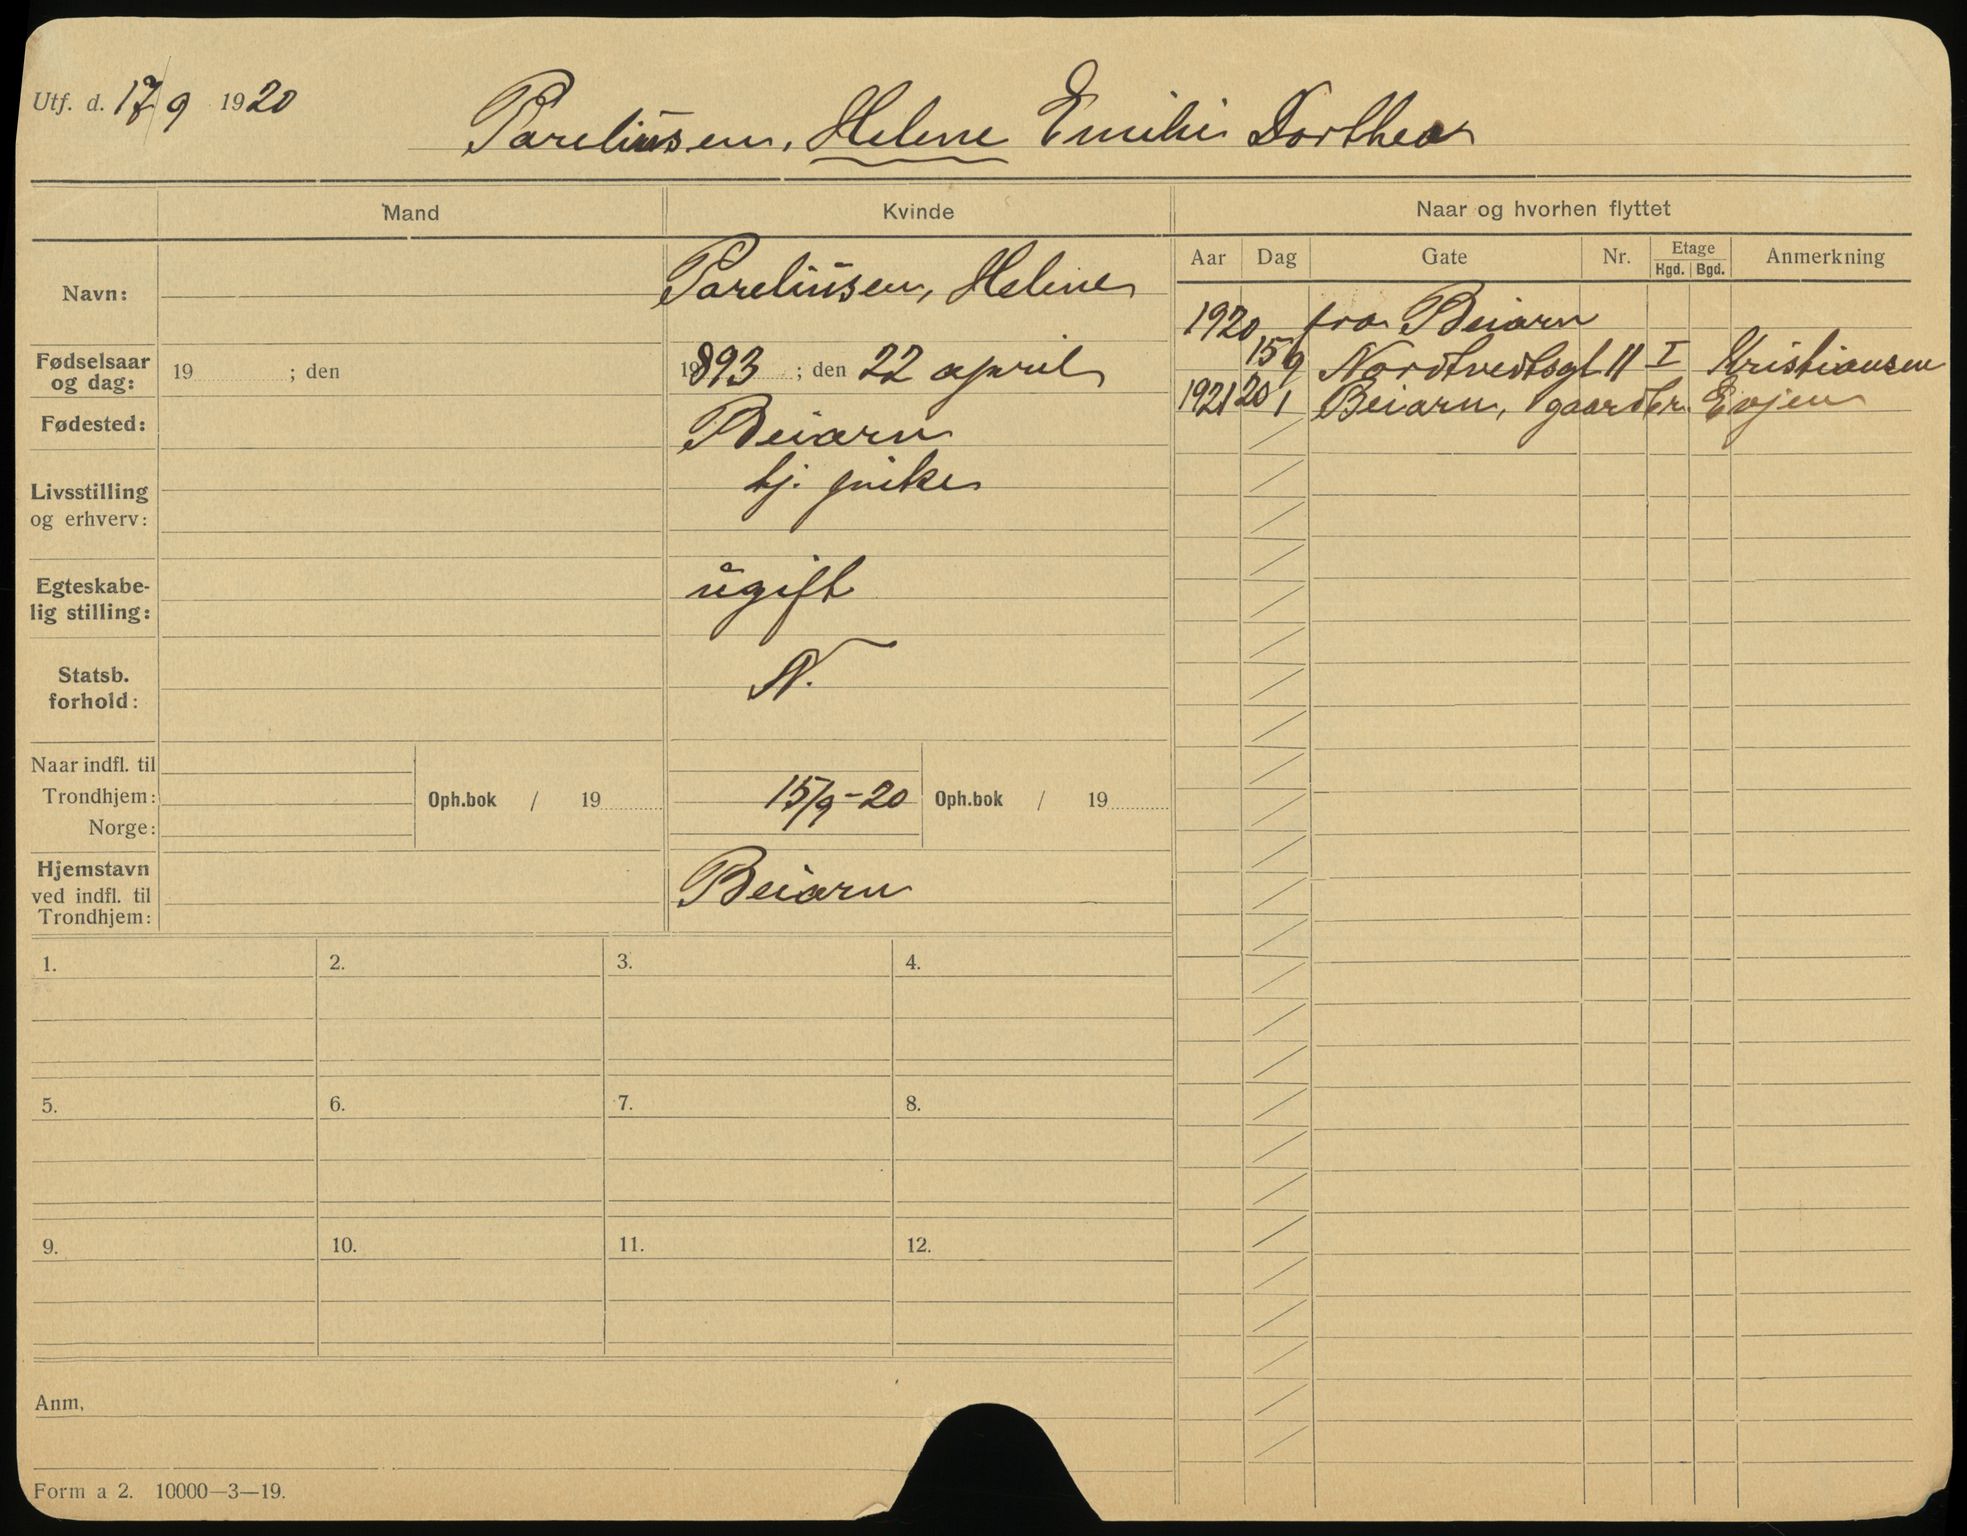 Utf. d. 17/9 1920
Pareliusen, Helene Emilie Dorthea
Mand
Kvinde
Naar og hvorhen flyttet
Aar Dag Gate Nr. Etage Hgd. Bgd. Anmerkning
Navn: Pareliusen, Helene
Fødselsaar og dag: 19 ; den
1893 ; den 22 april
Fødested: Beiarn
Livsstilling og erhverv: tj. pike
Egteskabelig stilling: ugift
Statsb. forhold: N.
Naar indfl. til
Trondhjem: Oph.bok / 19
15/9-20 Oph.bok / 19
Norge:
Hjemstavn ved indfl. til Trondhjem: Beiarn
1920 fra Beiarn
15/9 Nordtvedtsgt 11 I Kristiansen
1921 20/1 Beiarn, gaardbr. Evjen
1. 2. 3. 4.
5. 6. 7. 8.
9. 10. 11. 12.
Anm,
Form a 2. 10000—3—19.